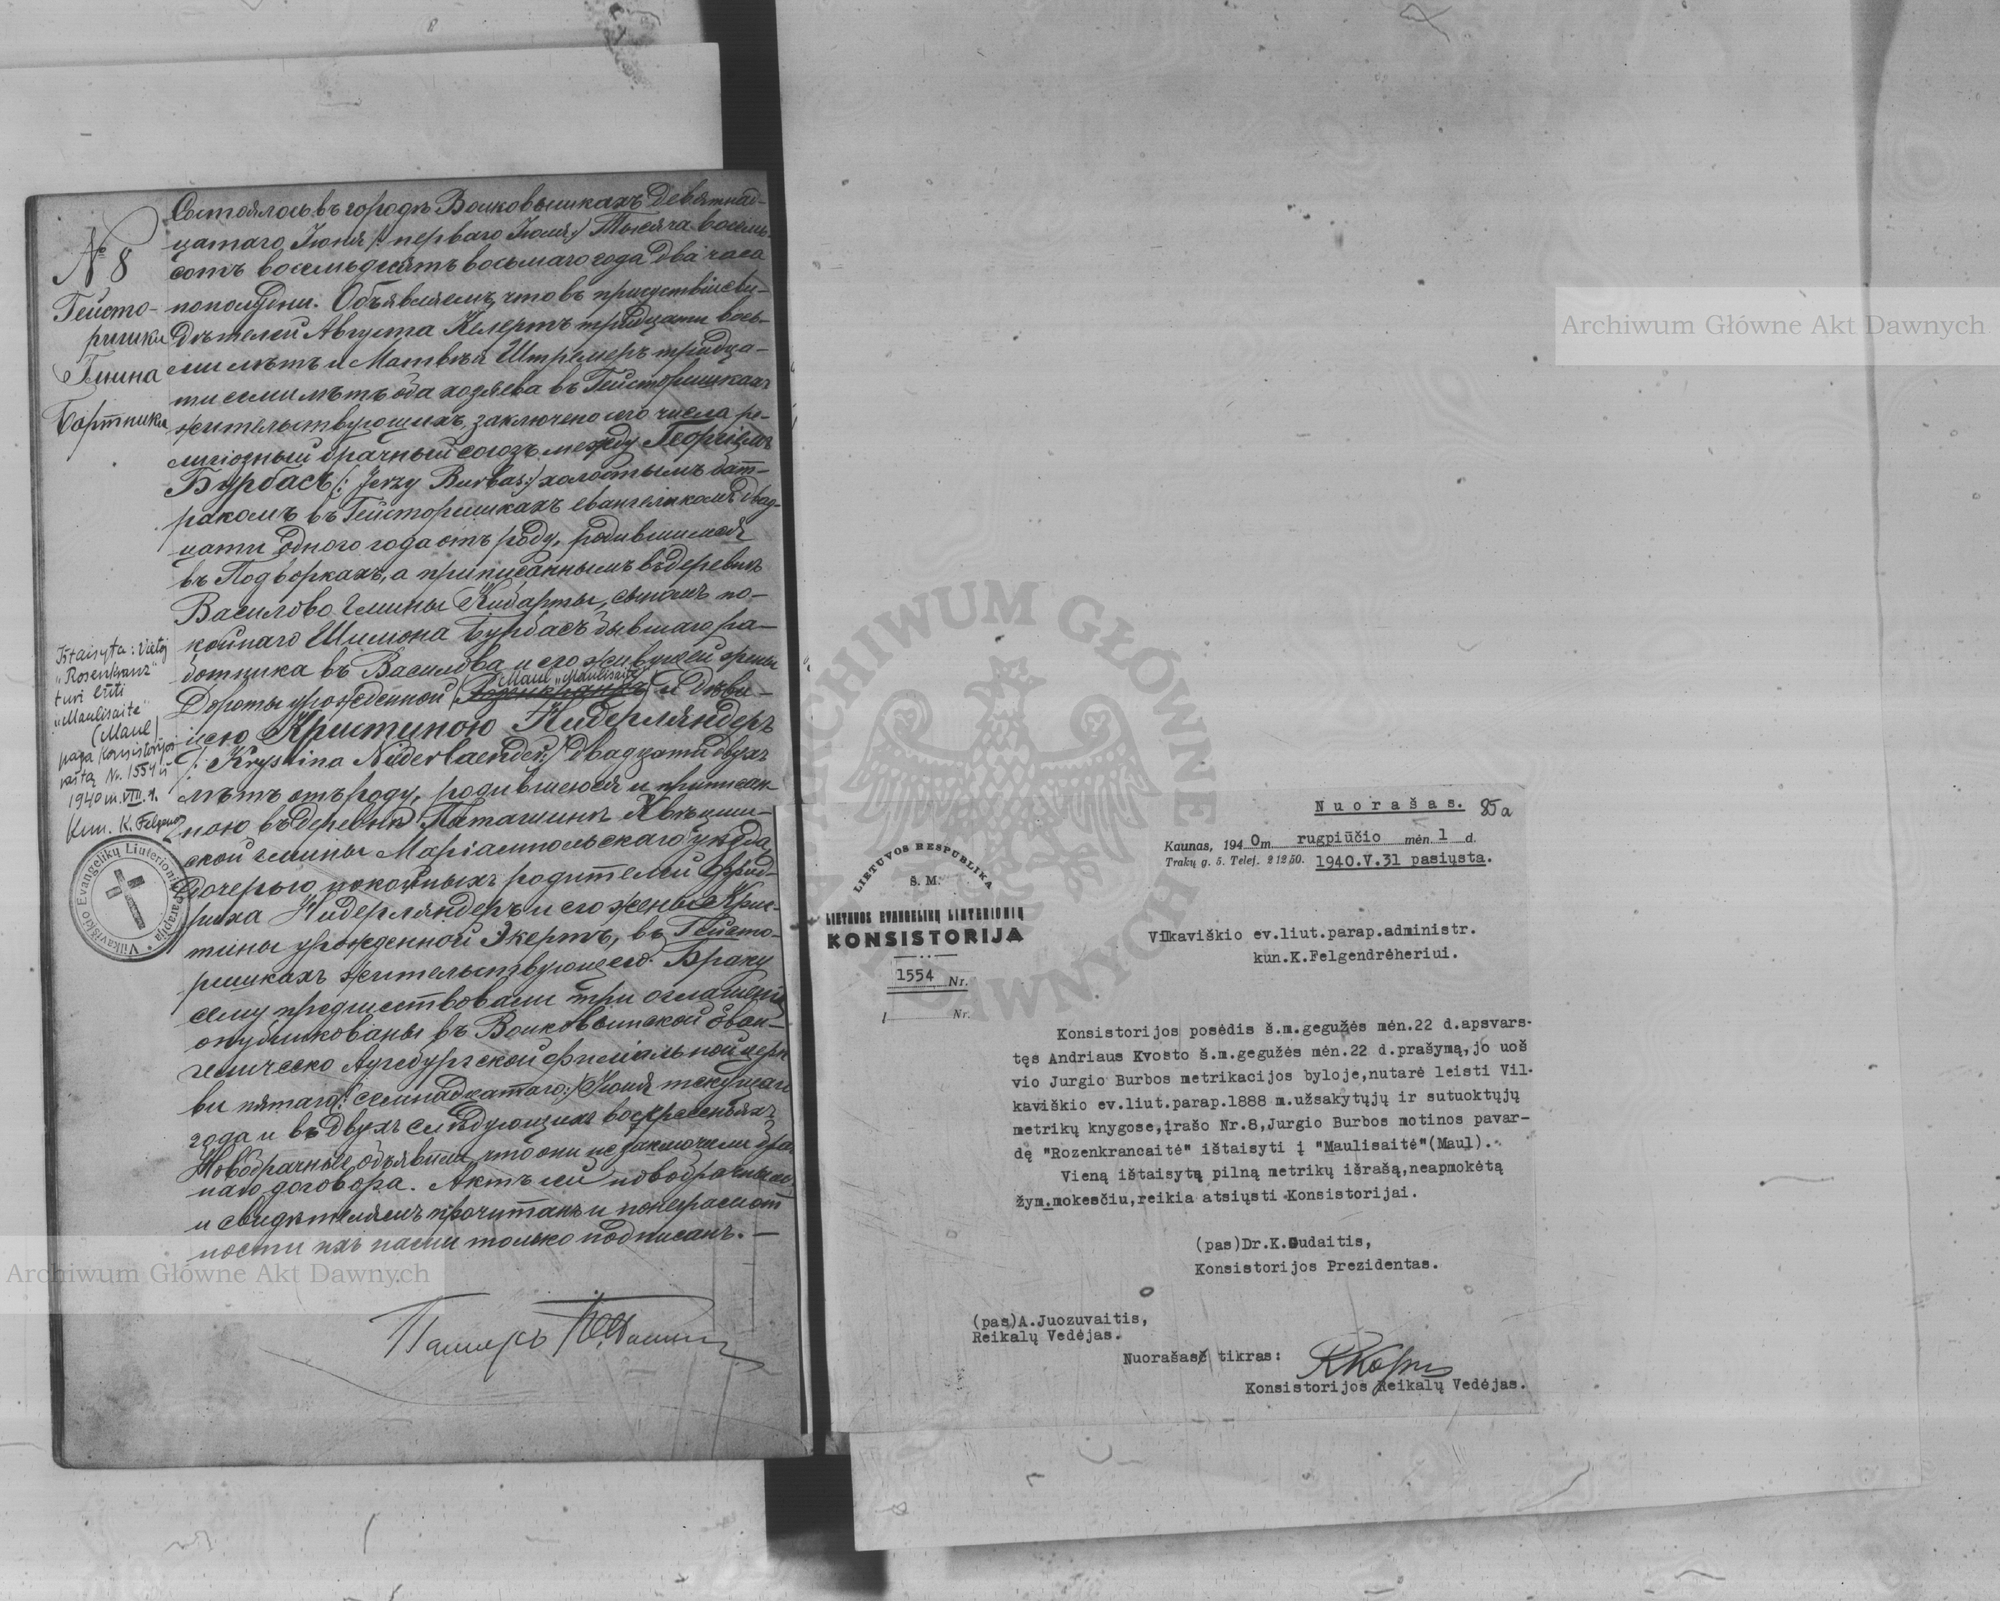 № 8
Гейсто-
ришки
Гмина
Бартники
Состоялось въ городѣ Волковышкахъ Девятнад-
цатаго Іюня /: перваго Іюля :/ Тысяча восемь-
сотъ восемьдесятъ восьмаго года два часа
пополудни. Объявляемъ, что въ присутствіи сви-
дѣтелей Августа Келертъ тридцати вось-
ми лѣтъ и Матвѣя Штремеръ тридца-
ти семи лѣтъ оба хозяева въ Гейсторишкахъ
жительствующихъ, заключено сего числа ре-
лигіозный брачный союзъ между Георгіемъ
Бурбасъ /: Jerzy Burbas :/ холостымъ бат-
ракомъ въ Гейсторишкахъ евангеликомъ двад-
цати одного года отъ роду, родившимся
въ Подворкахъ, а приписаннымъ въ деревнѣ
Василово гмины Кибарты, сыномъ по-
койнаго Шимона Бурбасъ бывшаго ра-
ботника въ Василова и его живущей жены
Maul „Maulisaitė“
Дороты урожденной Розенкранцъ и дѣви-
цею Христиною Нидерляндеръ
/: Krystina Niderlaender :/ двадцати двухъ
лѣтъ отъ роду, родившеюся и приписан-
ною въ деревнѣ
ской гмины Маріампольскаго уѣзда,
дочерью покойныхъ родителей Фрид-
риха Нидерляндеръ и его жены Хрис-
тины урожденной Экертъ, въ Гейсто-
ришкахъ жительствующею. Браку
сему предшествовали три оглашенія
опубликованы въ Волковышской Еван-
гелическо Аугсбургской филіальной церк-
ви пятаго /: семнадцатаго :/ Іюня текущаго
года и въ двухъ слѣдующихъ воскресеньяхъ
Новобрачные объявили, что они не заключили брач-
наго договора. Актъ сей новобрачнымъ
и свидѣтелямъ прочитанъ и по неграмот-
ности ихъ нами только подписанъ. —
Пасторъ
Ištaisyta: vietoj
„Rosenkranz“
turi būti
„Maulisaitė“
(Maul)
paga Konsistorijos
raštą Nr. 1554 iš
1940 m. VIII. 1.
Kun. K. Felgendr
Vilkaviškio Evangelikų Liuterionių Parapija
Nuorašas. 85a
Kaunas, 1940 m. rugpiūčio mėn. 1 d.
Trakų g. 5. Telef. 21250. 1940.V.31 pasiųsta.
LIETUVOS RESPUBLIKA
Š. M.
LIETUVOS EVANGELIKŲ LIUTERIONIŲ
KONSISTORIJA
1554 Nr.
Nr.
Vilkaviškio ev.liut.parap.administr.
kun.K.Felgendrėheriui.
Konsistorijos posėdis š.m.gegužės mėn.22 d.apsvars-
tęs Andriaus Kvosto š.m.gegužės mėn.22 d.prašymą,jo uoš
vio Jurgio Burbos metrikacijos byloje,nutarė leisti Vil-
kaviškio ev.liut.parap.1888 m.užsakytųjų ir sutuoktųjų
metrikų knygose,įrašo Nr.8,Jurgio Burbos motinos pavar-
dę "Rozenkrancaitė" ištaisyti į "Maulisaitė"(Maul).
Vieną ištaisytą pilną metrikų išrašą,neapmokėtą
žym.mokesčiu,reikia atsiųsti Konsistorijai.
(pas)Dr.K.Gudaitis,
Konsistorijos Prezidentas.
(pas)A.Juozuvaitis,
Reikalų Vedėjas.
Nuorašas tikras:
Konsistorijos Reikalų Vedėjas.
Archiwum Główne Akt Dawnych
Archiwum Główne Akt Dawnych
ARCHIWUM GŁÓWNE AKT DAWNYCH